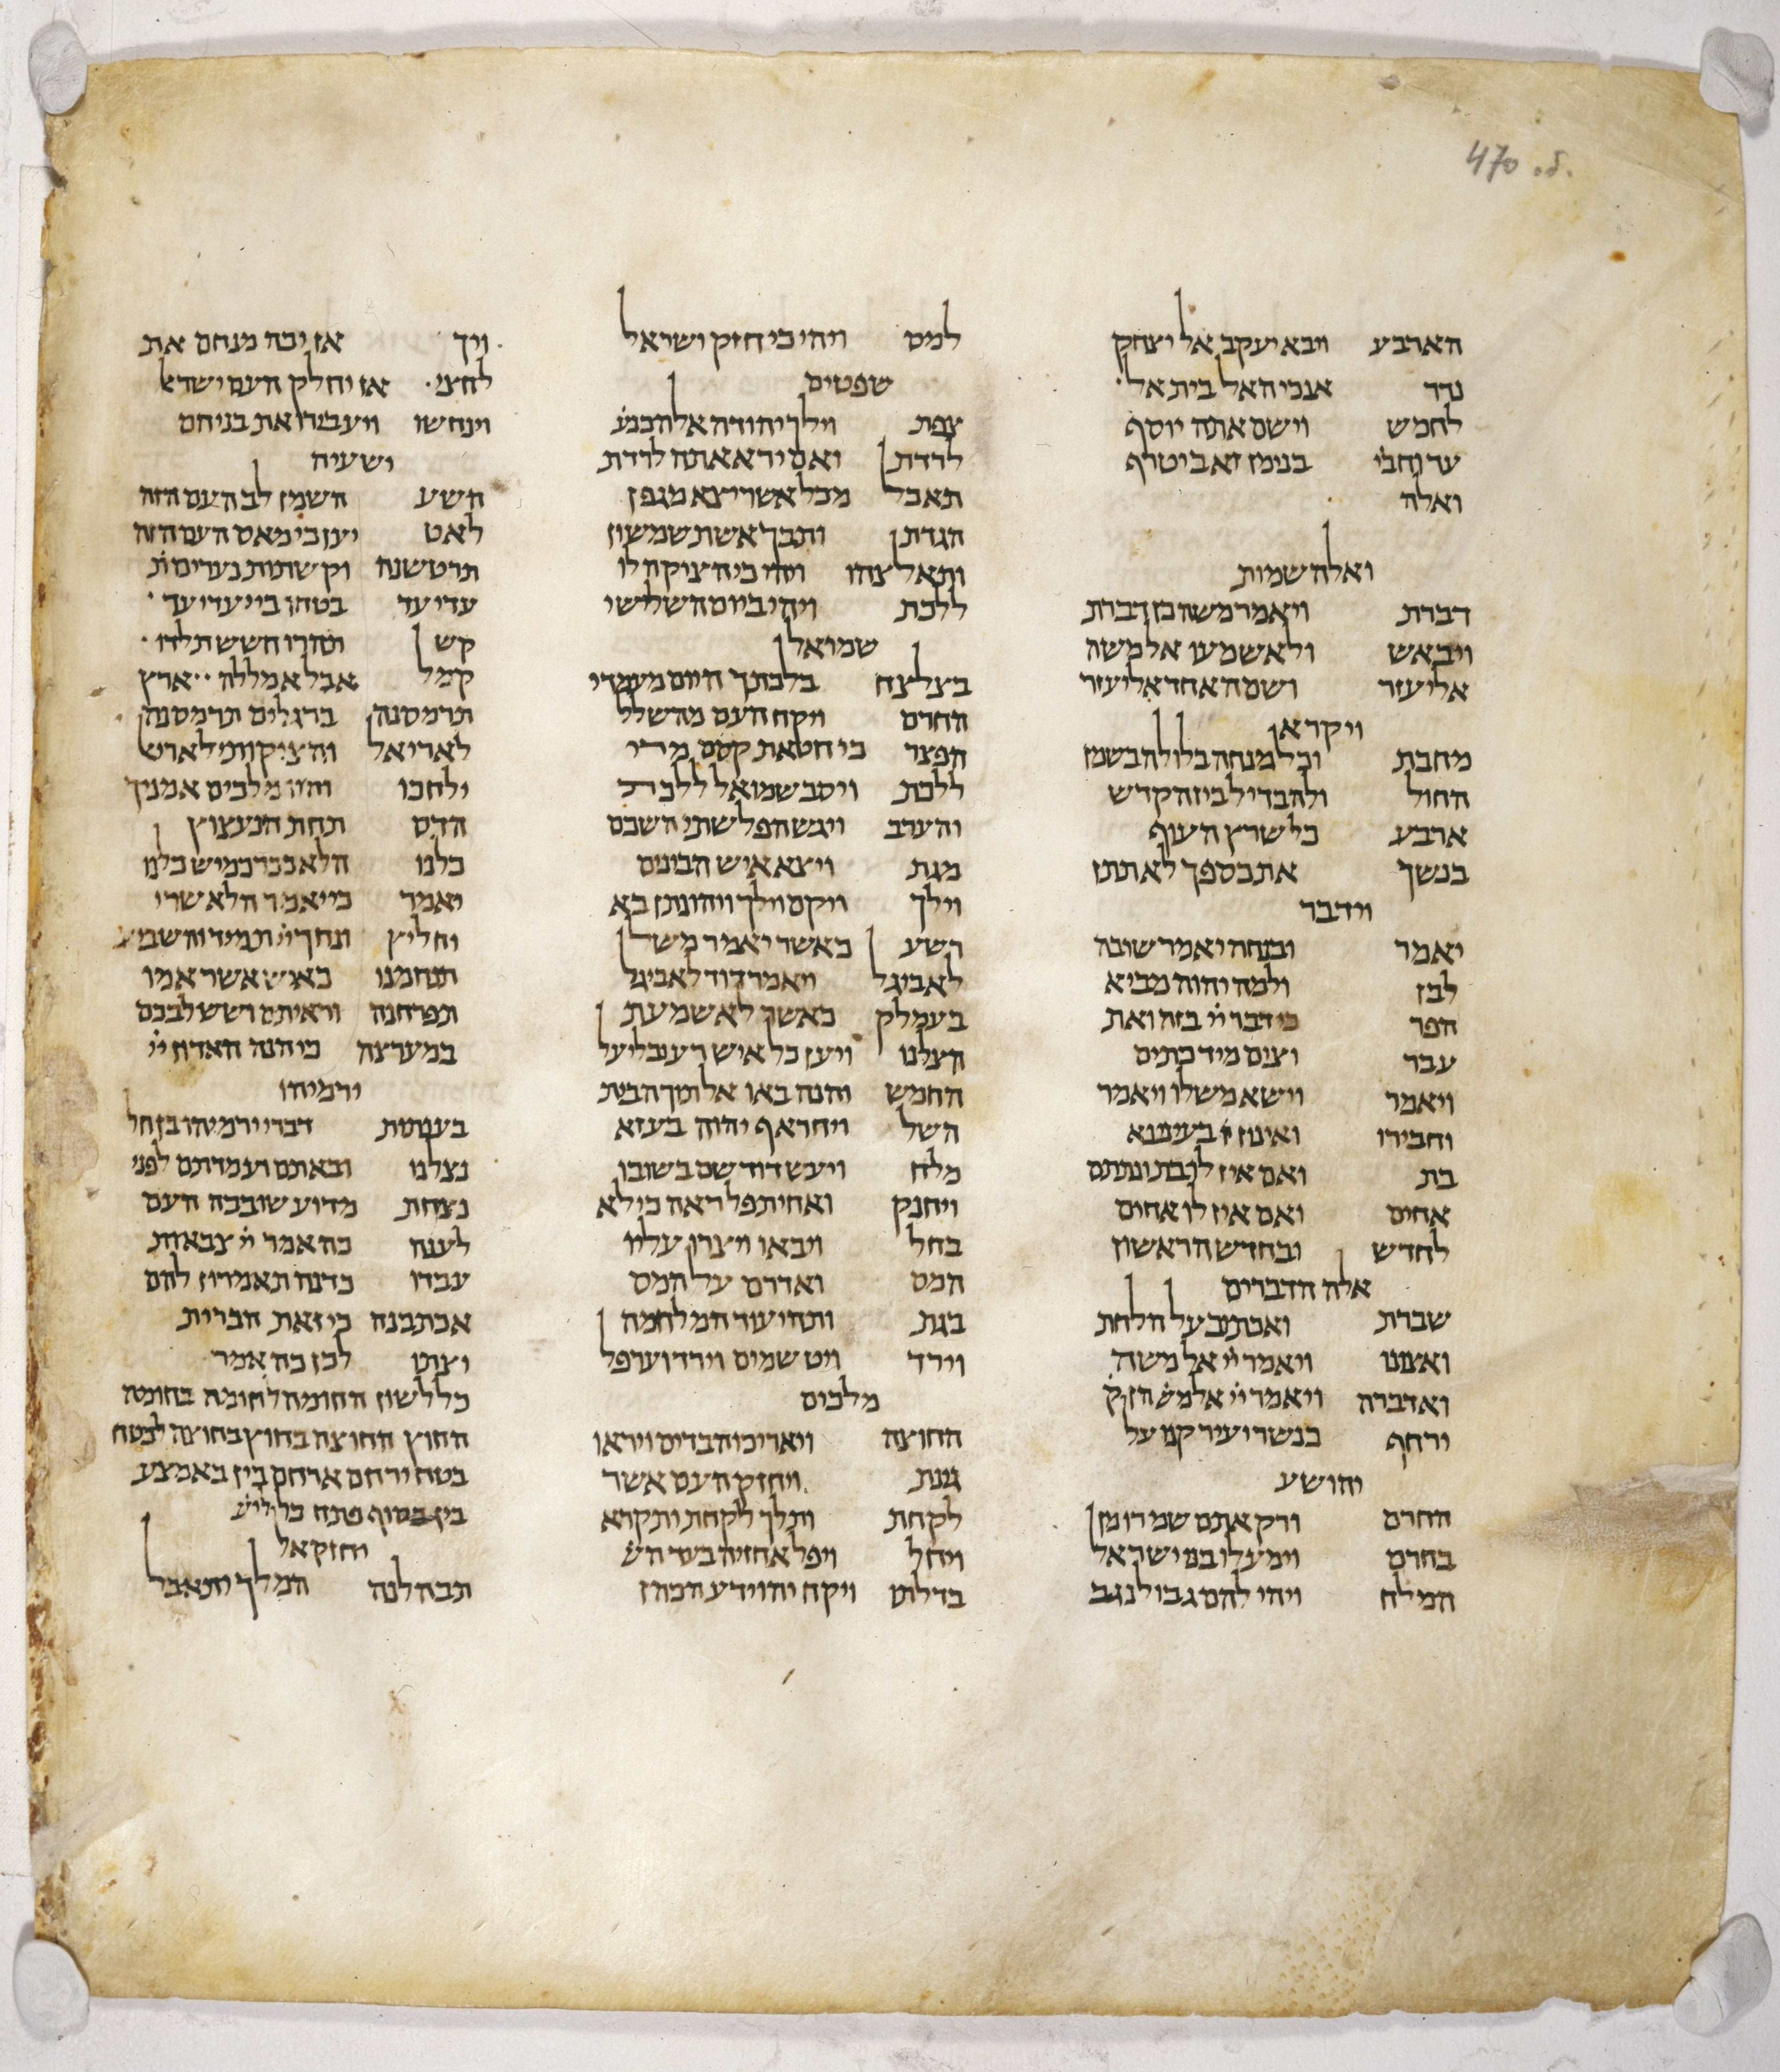 470 .ב.
הארבע ויבא יעקב אל יצחק
נדר אנכי האל בית אל
לחמש וישם אתה יוסף
ערוחבי בנימן זאב יטרף
ואלה
ואלה שמות
דברת ויאמר משה כן דברת
ויבאש ולא שמעו אל משה
אליעזר ושם האחד אליעזר
ויקרא
מחבת וכל מנחה בלולה בשמן
החול ולהבדיל בין הקדש
ארבע כל שרץ העוף
בנשך את כספך לא תתן
וידבר
יאמר ובנחה יאמר שובה
לבז ולמה יהוה מביא
הפר כי דבר יי בזה ואת
עבר וצים מיד כתים
ויאמר וישא משלו ויאמר
וחבירו ואינון בעינא
בת ואם אין לו בת ונתתם
אחים ואם אין לו אחים
לחדש ובחדש הראשון
אלה הדברים
שברת ואכתב על הלחת
ואצונו ויאמר יי אל משה
ואדברה ויאמר יי אל מש הן
ירחף כנשר יעיר קנו על
יהושע
החרם ורק אתם שמרו מן
בחרם וימעלו בני ישראל
המלח ויהי להם גבול נגב
למס ויהי כי חזק ישראל
שפטים
צפת וילך יהודה אל הכנע
לרדת ואם ירא אתה לרדת
תאכל מכל אשר יצא מגפן
הגדתן ותבך אשת שמשון
ותאלצהו ויהי כי הציקה לו
ללכת ויהי ביום השלישי
שמואל
בצלצח בלכתך היום מעמדי
החרם ויקח העם מהשלל
הפצר כי חטאת קסם מרי
ללכת ויסב שמואל ללכת
והערב ויגש הפלשתי השכם
מגת ויצא איש הבינים
וילך ויקם וילך ויהונתן בא
רשע כאשר יאמר משל
לאביגל ויאמר דוד לאביגל
בעמלק כאשר לא שמעת
הצלנו ויען כל איש רע ובליעל
החמש והנה באו אל תוך הבית
השל ויחר אף יהוה בעזא
מלח ויעש דוד שם בשובו
ויחנק ואחיתפל ראה כי לא
בחל ויבאו ויצרו עליו
המס ואדרם על המס
בגת ותהי עוד המלחמה
וירד ויט שמים וירד וערפל
מלכים
החוצה ויאריכו הבדים ויראו
גנת ויחזק העם אשר
לקחת ותלך לקחת ותקרא
ויחל ויפל אחזיה בעד הש
בדלתו ויקח יהוידע הכהן
ויך אז יכה מנחם את
לחצי אז יחלק העם ישראל
וינחשו ויעבירו את בניהם
ישעיה
השע השמן לב העם הזה
לאט יען כי מאס העם הזה
תרטשנה וקשתות נערים ת
עדי עד בטחו ביי עדי עד
קש תהרו חשש תלדו
קמל אבל אמללה ארץ
תרמסנה ברגלים תרמסנה
לאריאל והציקותי לאריא
ילחכו והיו מלכים אמניך
הדס תחת הנעצוץ
כלנו הלא ככרכמיש כלנו
יאמר כי יאמר הלא שרי
יחליץ ונחך יי תמיד והשביע
תנחמנו כאיש אשר אמו
תפרחנה וראיתם ושש לבכם
במערצה כי הנה האדון יי
ירמיהו
בענתות דברי ירמיהו בן חל
נצלנו ובאתם ועמדתם לפני
נצחת מדוע שובבה העם
לענה כה אמר יי צבאות
עבדו כדנה תאמרון להם
אכתבנה כי זאת הברית
יצתו לכן כה אמר
כל לשון החומה לחומה בחומה
החוץ החוצה בחוץ בחוצה לבטח
בטח ירחם ארחם בין באמצע
בין בסוף פתח כוליש
יחזקאל
תבהלנה המלך יתאבל